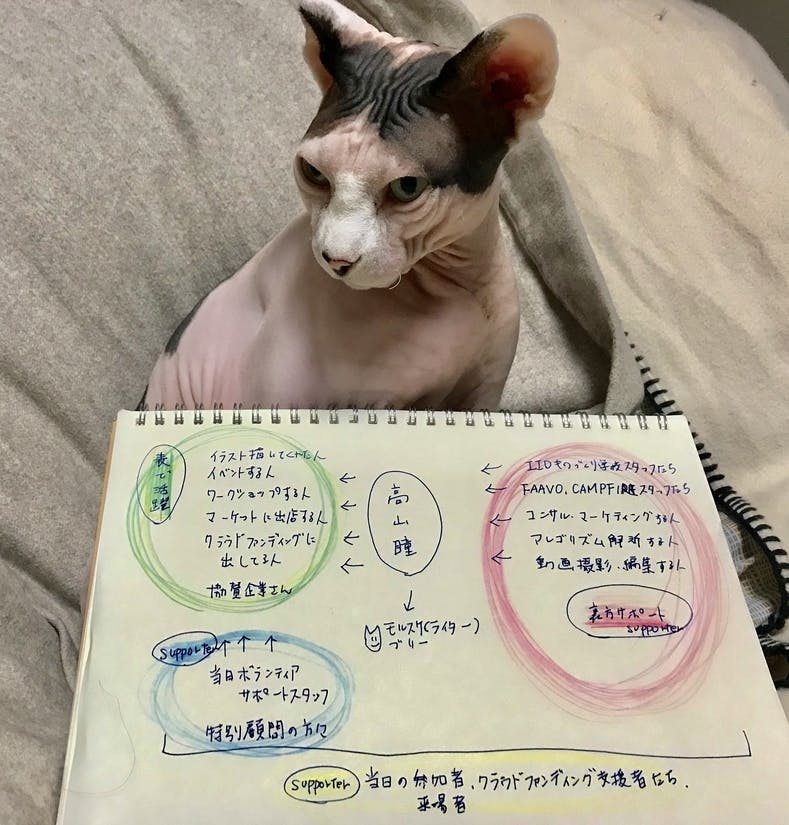 表で活躍
イラスト描いてくれた人
イベントする人
ワークショップする人
マーケットに出店する人
クラウドファンディングに
出してる人
協賛企業さん
高山瞳
モルスケ(ライター)
ブリー
IIDものづくり学校スタッフたち
FAAVO、CAMPFIREスタッフたち
コンサル・マーケティングする人
アルゴリズム解析する人
動画撮影、編集する人
裏方サポート
supporter
supporter
当日ボランティア
サポートスタッフ
特別顧問の方々
supporter
当日の参加者、クラウドファンディング支援者たち、
来場者